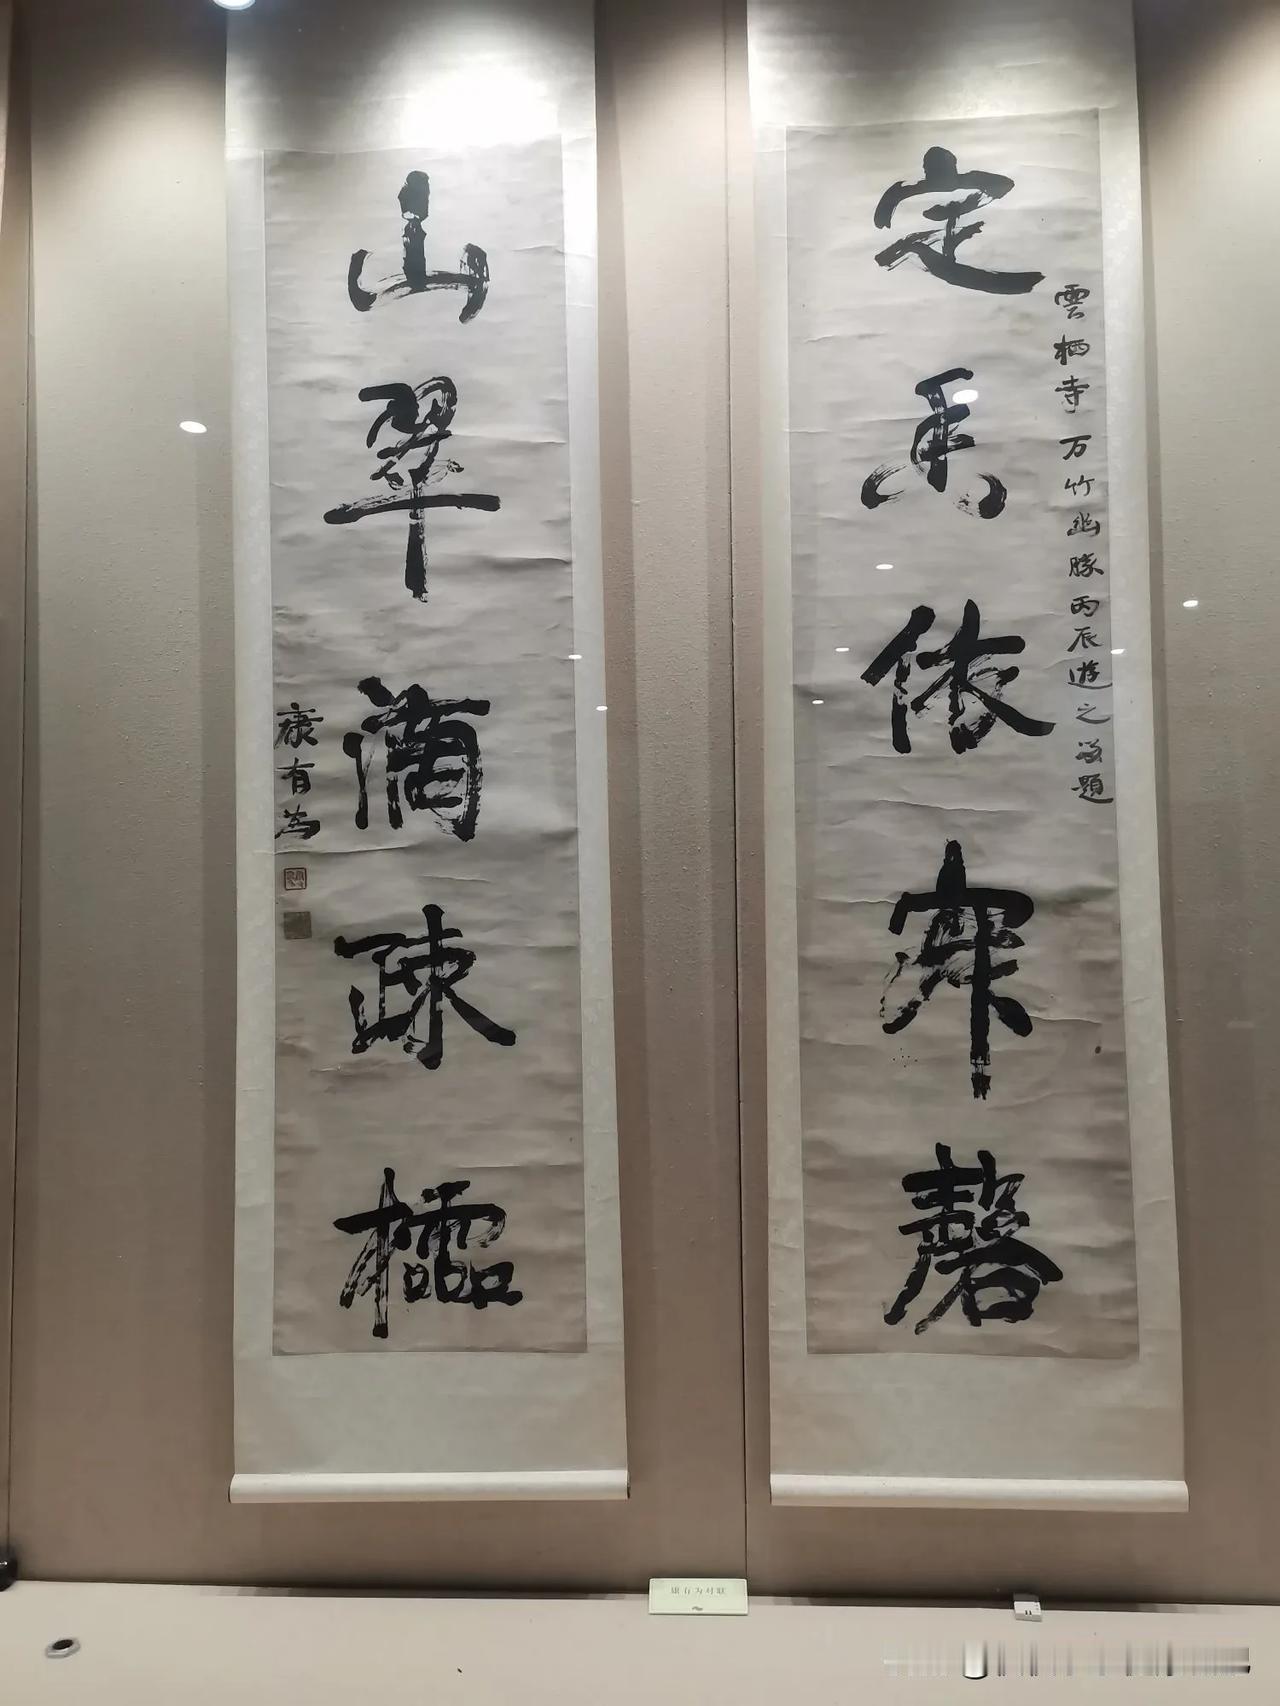 雲栖寺万竹幽勝丙辰遊之留題
定香依寂磬
山翠滴疎櫺
康有為
康有为对联